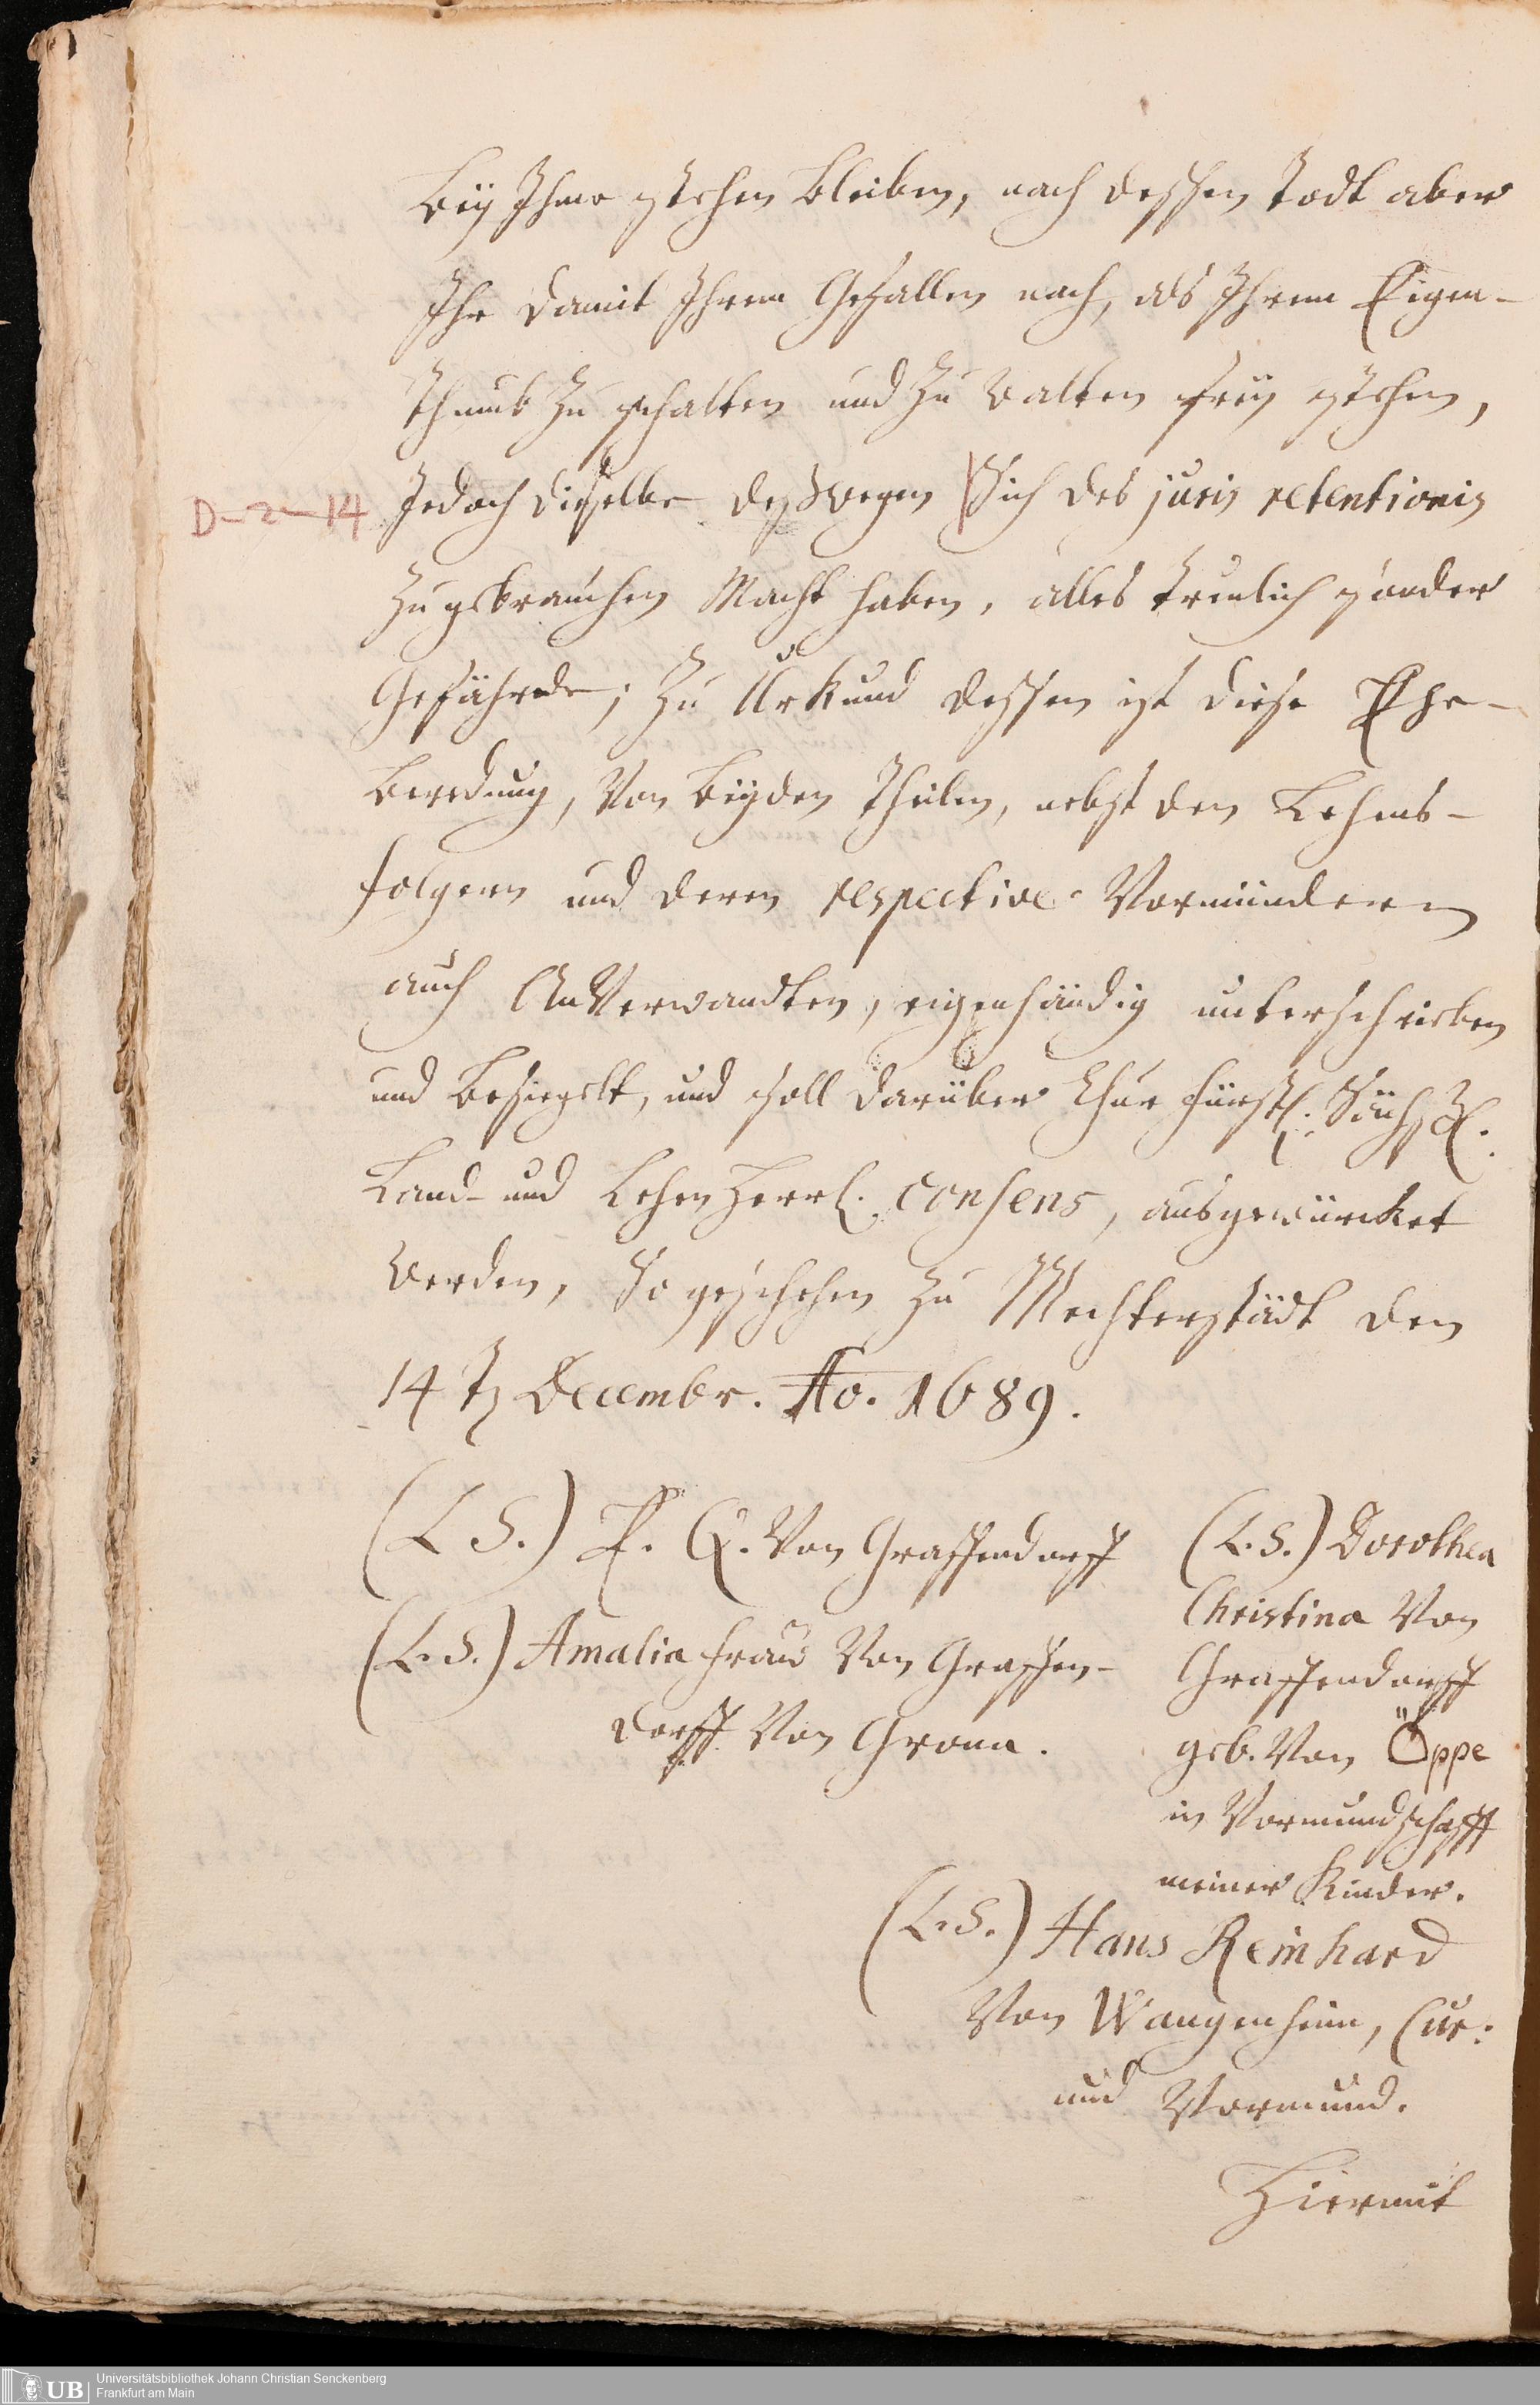 bey Ihme stehen bleiben, nach dessen Todt aber
Ihr damit Ihrem Gefallen nach, als Ihrem Eigen-
thumb zu schalten und zu walten frey stehen,
D-2-14 Jedoch dieselbe deßwegen sich des juris retentionis
zu gebrauchen Macht haben, alles treulich sonder
Gefährde; Zu Urkund dessen ist diese Ehe-
beredung, von beyden Theilen, nebst den Lehens-
folgern und deren respective Vormündern
auch Anverwandten, eigenhändig unterschrieben
und besiegelt, und soll darüber Chur fürstl. Sächßl.
Land- und Lehen Herrl. consens, ausgewürcket
werden, So geschehen zu Mechterstädt den
14 t Decembr. Ao. 1689.
(L S.) E. Q. von Graffendorff
(L.S.) Amalia Frau von Graffen-
dorff von Grona.
(L.S.) Dorothea
Christina von
Graffendorff
geb. von Öppe
in Vormundschafft
meiner Kinder.
(L.S.) Hans Reinhard
von Wangenheim, Cur:
und Vormund.
Hiermit
UB Universitätsbibliothek Johann Christian Senckenberg
Frankfurt am Main